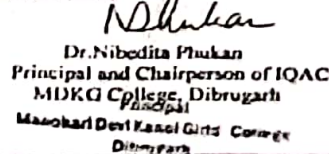 NDhukan
Dr.Nibedita Phukan
Principal and Chairperson of IQAC
MDKG College, Dibrugarh
Principal
Manohari Devi Kanoi Girls College
Dibrugarh